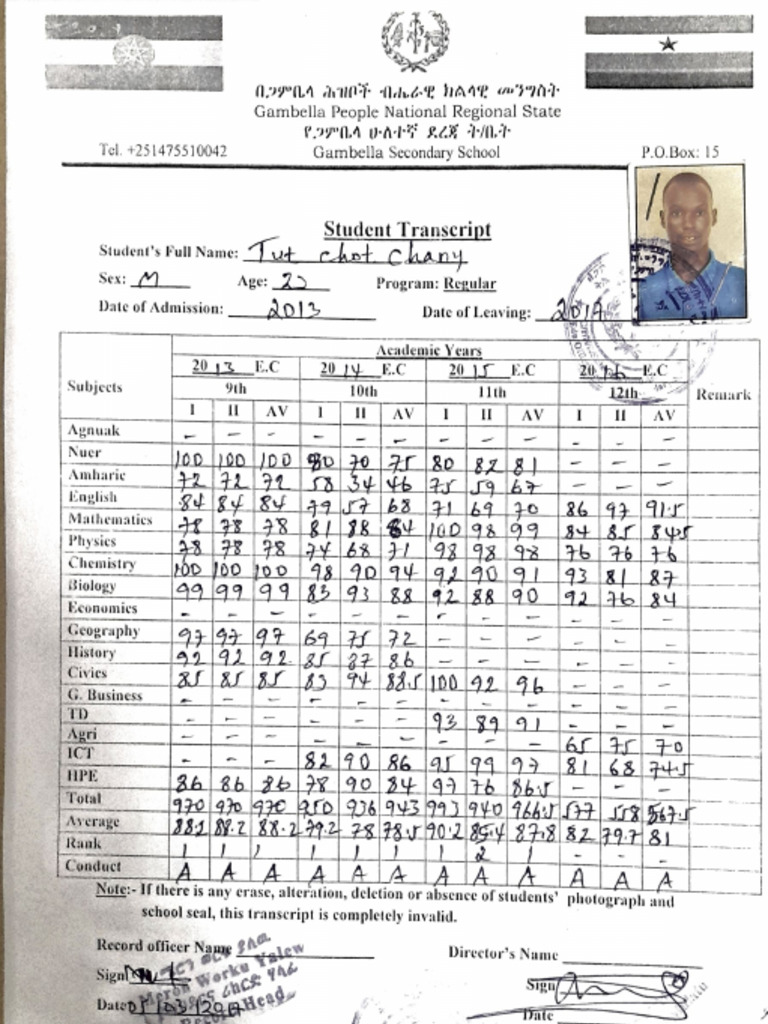 በጋምቤላ ሕዝቦች ብሔራዊ ክልላዊ መንግስት
Gambella People National Regional State
የጋምቤላ ሁለተኛ ደረጃ ት/ቤት
Tel. +251475510042 Gambella Secondary School P.O.Box: 15
Student Transcript
Student's Full Name: Tut chot chany
Sex: M Age: Program: Regular
Date of Admission: 2013 Date of Leaving: 2017
Subjects Academic Years Remark
2013 E.C 2014 E.C 2015 E.C 2016 E.C
9th 10th 11th 12th
I II AV I II AV I II AV I II AV
Agnuak - - - - - - - - - - - -
Nuer 100 100 100 80 70 75 80 82 81 - - -
Amharic 72 72 72 58 34 46 75 59 67 - - -
English 84 84 84 79 57 68 71 69 70 86 97 91.5
Mathematics 78 78 78 81 88 84 100 98 99 84 85 84.5
Physics 78 78 78 74 68 71 98 98 98 76 76 76
Chemistry 100 100 100 98 90 94 92 90 91 93 81 87
Biology 99 99 99 83 93 88 92 88 90 92 76 84
Economics - - - - - - - - - - - -
Geography 97 97 97 69 75 72 - - - - - -
History 92 92 92 85 87 86 - - - - - -
Civics 85 85 85 83 94 88.5 100 92 96 - - -
G. Business - - - - - - - - - - - -
TD - - - - - - 93 89 91 - - -
Agri - - - - - - - - - 65 75 70
ICT - - - 82 90 86 95 99 97 81 68 74.5
HPE 86 86 86 78 90 84 97 76 86.5 - - -
Total 970 970 970 950 936 943 993 940 966.5 577 558 567.5
Average 88.2 88.2 88.2 79.2 78 78.5 90.2 85.4 87.8 82 79.7 81
Rank 1 1 1 1 1 1 1 2 1 - - -
Conduct A A A A A A A A A A A A
Note:- If there is any erase, alteration, deletion or absence of students' photograph and
school seal, this transcript is completely invalid.
Record officer Name Director's Name
Sign Sign
Meron Worku Yalew
Date 05/03/2017 Date
Record Head